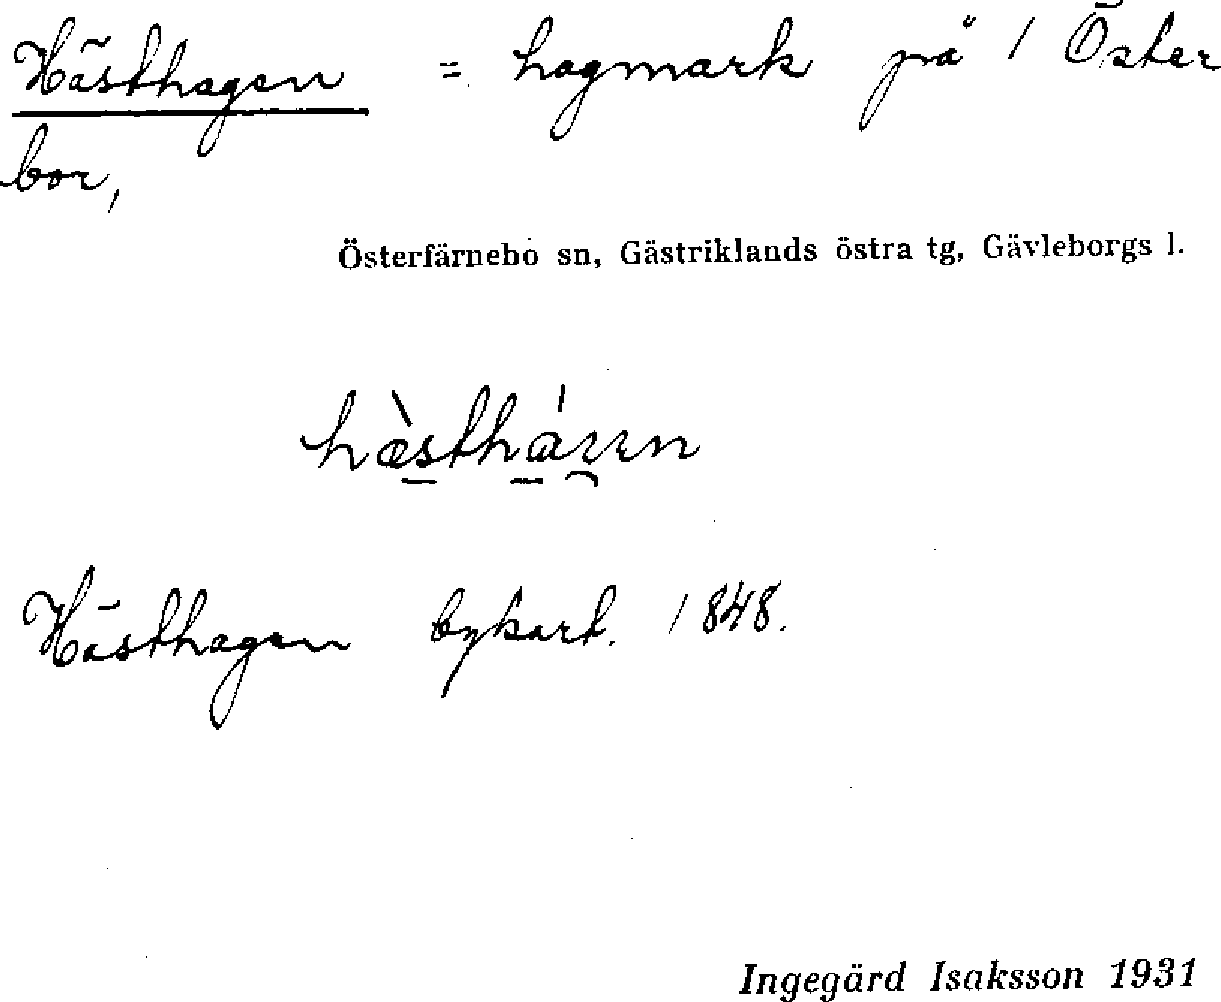 Hästhagen = hagmark på 1 Öster
bor,
Österfärnebo sn, Gästriklands östra tg, Gävleborgs l.
Hästhagen bykart. 1848.
Ingegärd Isaksson 1931